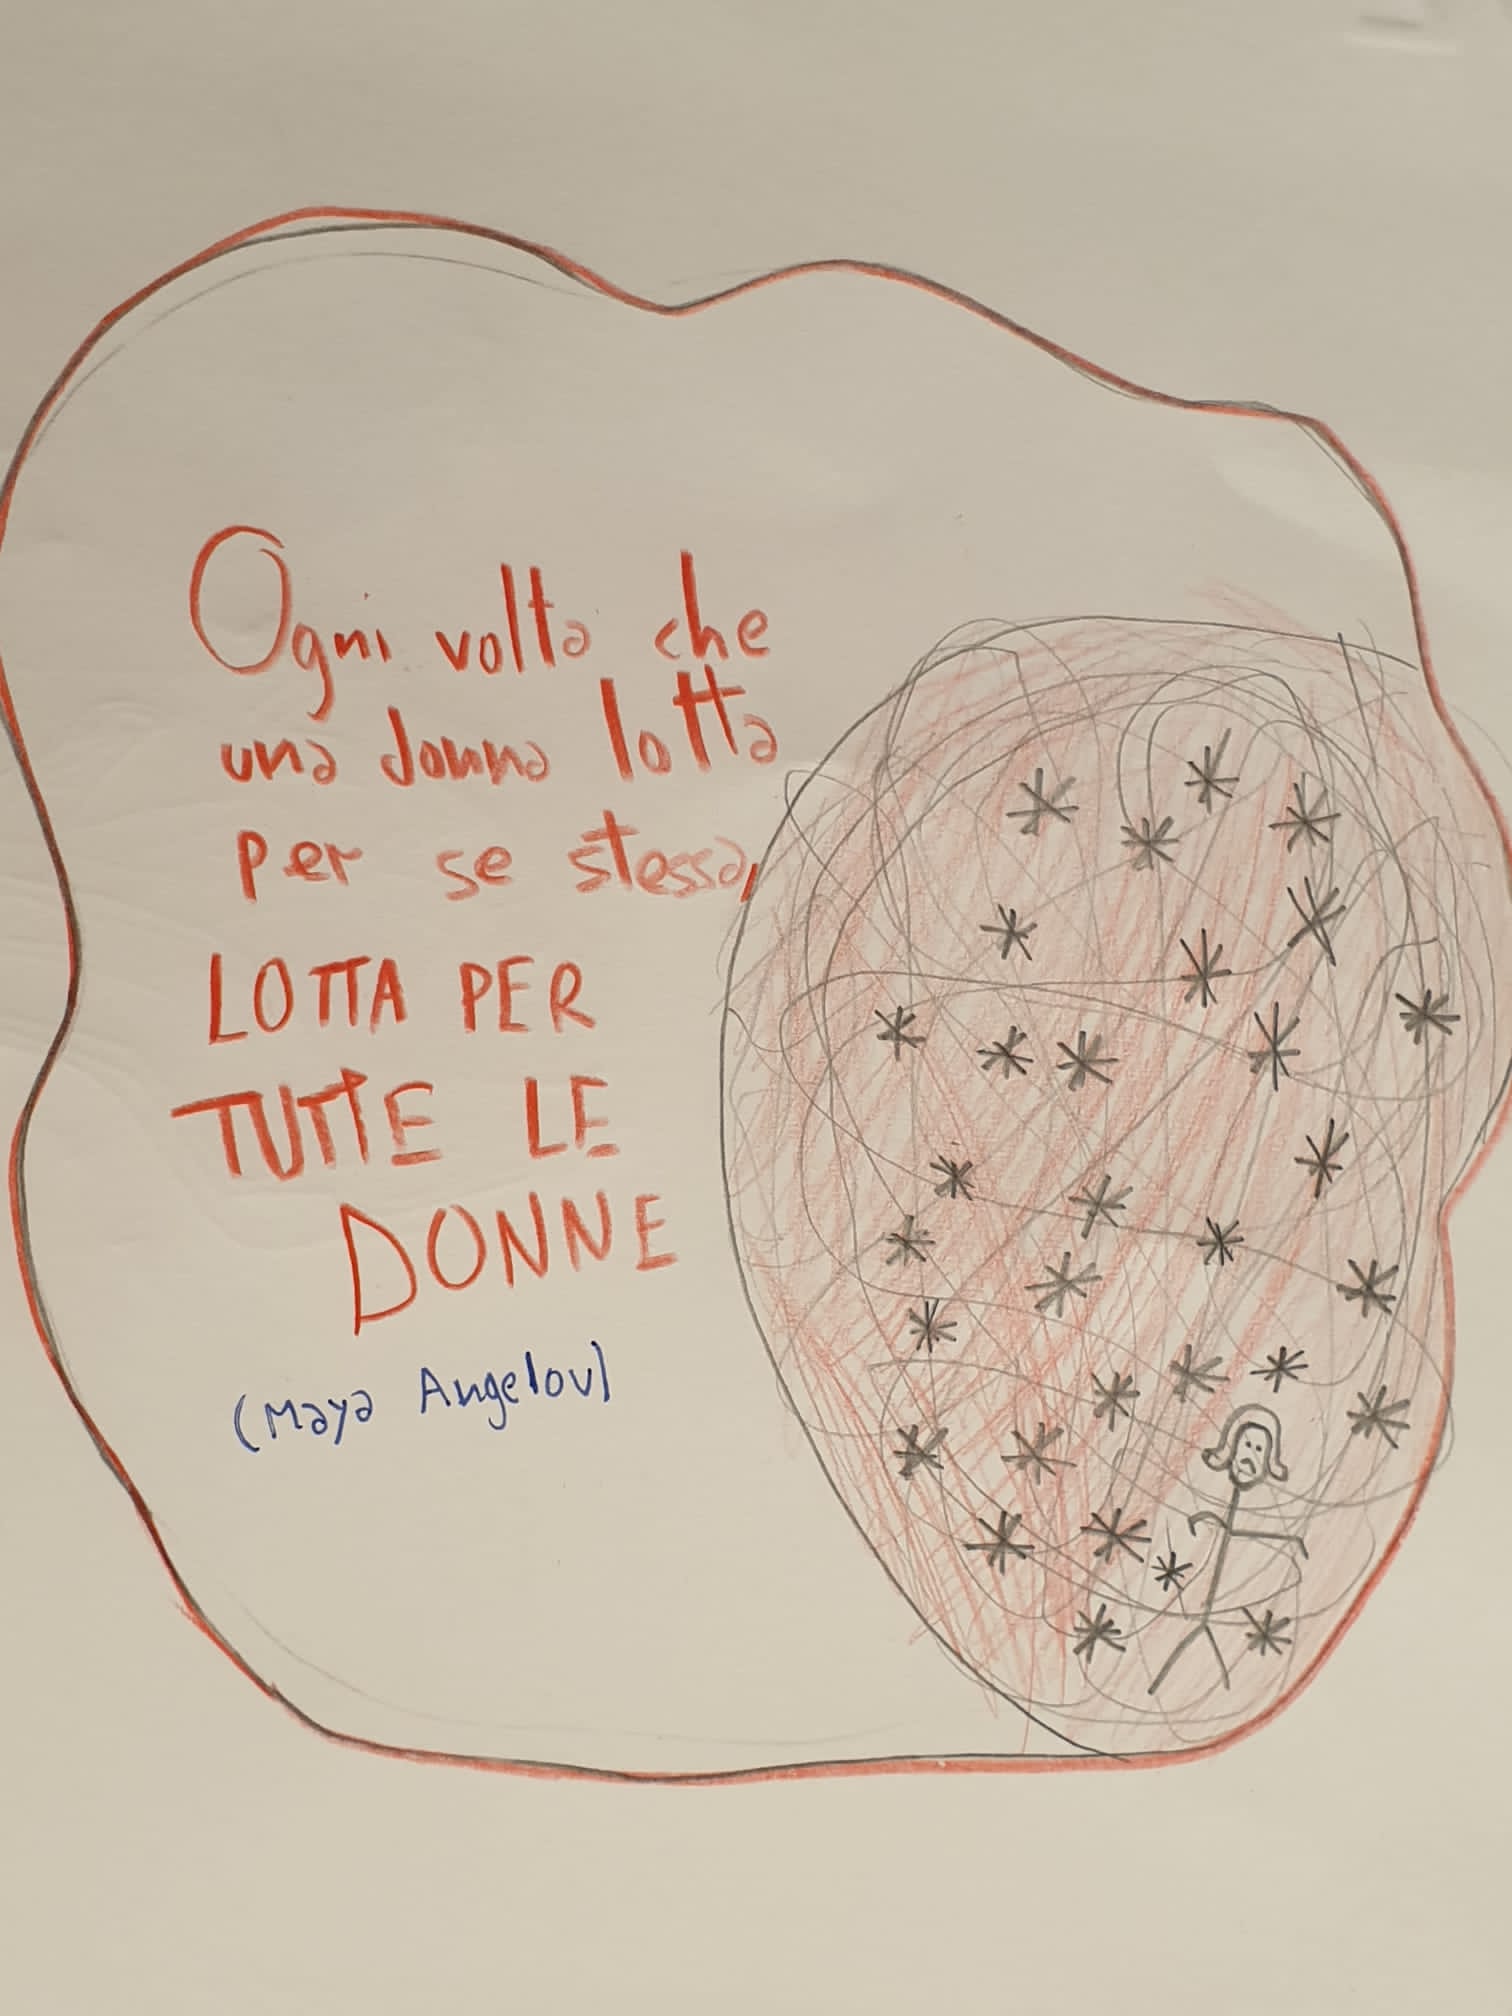 Ogni volta che
una donna lotta
per se stessa,
LOTTA PER
TUTTE LE
DONNE
(Maya Angelou)